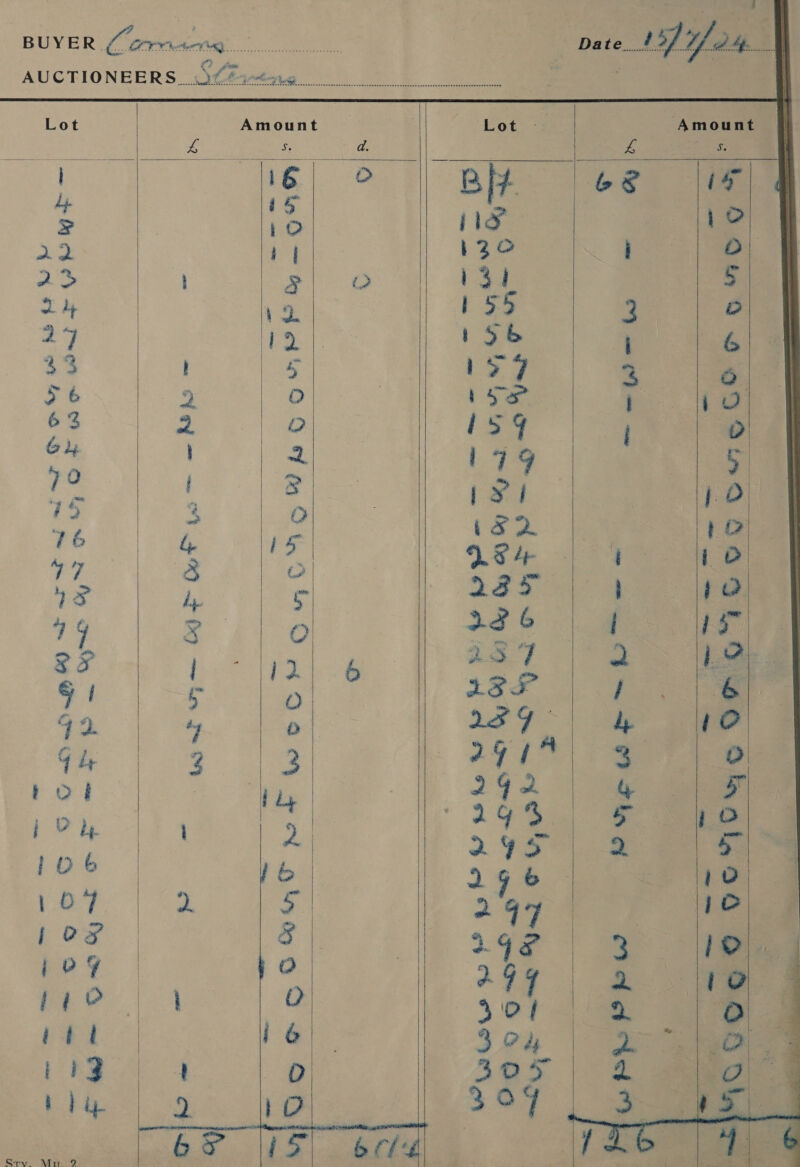 BUYER Corning Date 15/7/24
AUCTIONEERS Stevens
Lot Amount Lot Amount
£ s. d. £ s.
1 16 0 B/f 68 15
4 15 118 10
8 10 130 1 0
22 11 131 5
23 1 8 0 155 3 0
24 12 156 1 6
27 12 157 3 0
33 1 5 158 1 10
56 2 0 159 1 0
63 2 0 179 5
64 1 2 181 10
70 1 8 182 10
75 3 0 284 1 10
76 4 15 285 1 10
77 8 0 286 1 15
78 4 5 287 2 10
79 8 0 288 1 6
88 1 12 6 289 4 10
91 5 0 291A 3 0
92 7 0 292 4 5
94 3 3 293 5 10
101 14 295 2 5
104 1 2 296 10
106 16 297 10
107 2 5 298 3 10
108 8 299 2 10
109 10 301 2 0
110 1 0 304 2 0
111 16 305 2 0
113 1 0 307 3 15
114 2 10
68 15 6 126 7 6
Sty. Mu. 2